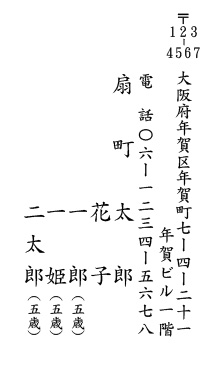 〒
123
-
4567
大阪府年賀区年賀町七ー四ー二十一
年賀ビル一階
電話〇六ー一二三四ー五六七八
扇町　太郎
花子
一郎（五歳）
一姫（五歳）
二太郎（五歳）